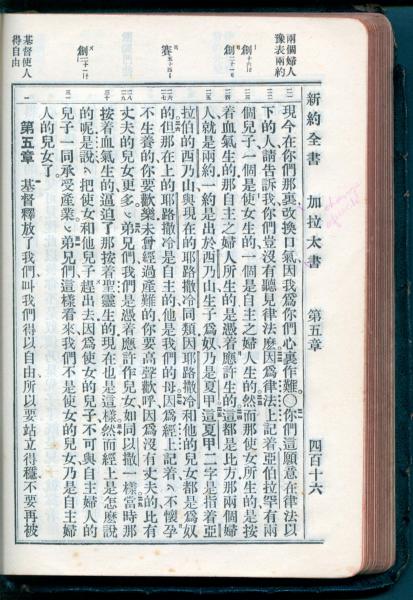 新約全書 加拉太書 第五章 四百十六
兩個婦人
豫表兩約
創
創
賽
創
基督使人
得自由
現今在你們那裏改換口氣因我爲你們心裏作難〇你們這願意在律法以
下的人請告訴我你們豈沒有聽見律法麽因爲律法上記着亞伯拉罕有兩
個兒子一個是使女生的一個是自主之婦人生的然而那使女所生的是按
着血氣生的那自主之婦人所生的是憑着應許生的這都是比方那兩個婦
人就是兩約一約是出於西乃山生子爲奴乃是夏甲這夏甲二字是指着亞
拉伯的西乃山與現在的耶路撒冷同類因耶路撒冷和他的兒女都是爲奴
的但那在上的耶路撒冷是自主的他是我們的母因爲經上記着不懷孕
不生養的你要歡樂未曾經過產難的你要高聲歡呼因爲沒有丈夫的比有
丈夫的兒女更多弟兄們我們是憑着應許作兒女如同以撒一樣當時那
按着血氣生的逼迫了那按着聖靈生的現在也是這樣然而經上是怎麽說
的呢是說把使女和他兒子趕出去因爲使女的兒子不可與自主婦人的
兒子一同承受產業弟兄們這樣看來我們不是使女的兒女乃是自主婦
人的兒女了
第五章 基督釋放了我們叫我們得以自由所以要站立得穩不要再被